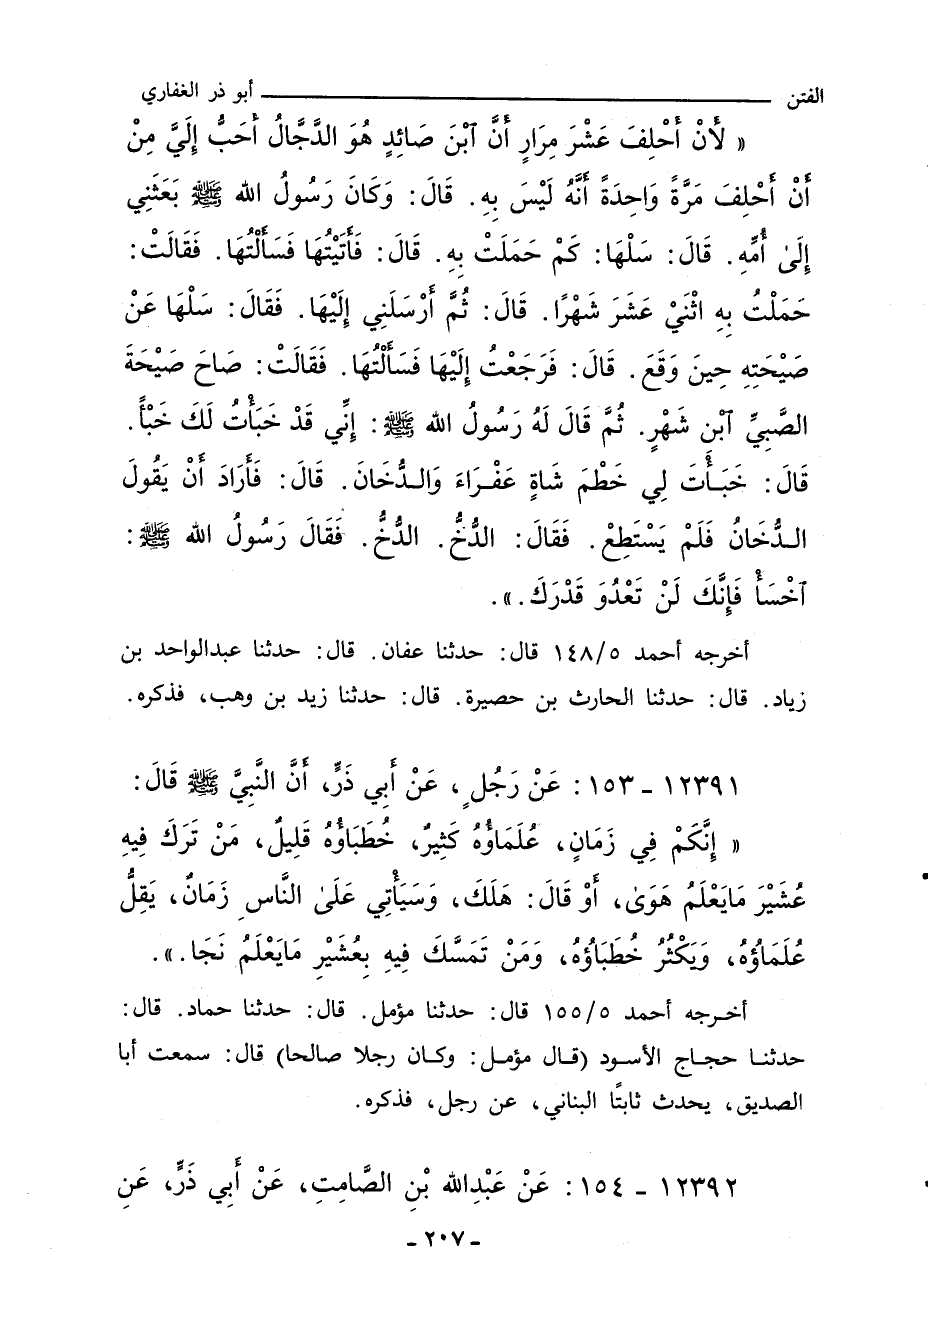 الفتن ــــــــــ أبو ذر الغفاري
« لَأَنْ أَحْلِفَ عَشْرَ مِرَارٍ أَنَّ ٱبْنَ صَائِدٍ هُوَ الدَّجَّالُ أَحَبُّ إِلَيَّ مِنْ
أَنْ أَحْلِفَ مَرَّةً وَاحِدَةً أَنَّهُ لَيْسَ بِهِ. قَالَ: وَكَانَ رَسُولُ الله ﷺ بَعَثَنِي
إِلَىٰ أُمِّهِ. قَالَ: سَلْهَا: كَمْ حَمَلَتْ بِهِ. قَالَ: فَأَتَيْتُهَا فَسَأَلْتُهَا. فَقَالَتْ:
حَمَلْتُ بِهِ اثْنَيْ عَشَرَ شَهْرًا. قَالَ: ثُمَّ أَرْسَلَنِي إِلَيْهَا. فَقَالَ: سَلْهَا عَنْ
صَيْحَتِهِ حِينَ وَقَعَ. قَالَ: فَرَجَعْتُ إِلَيْهَا فَسَأَلْتُهَا. فَقَالَتْ: صَاحَ صَيْحَةَ
الصَّبِيِّ ٱبْنِ شَهْرٍ. ثُمَّ قَالَ لَهُ رَسُولُ الله ﷺ: إِنِّي قَدْ خَبَأْتُ لَكَ خَبْأً.
قَالَ: خَبَأْتَ لِي خَطْمَ شَاةٍ عَفْرَاءَ وَالدُّخَانَ. قَالَ: فَأَرَادَ أَنْ يَقُولَ
الدُّخَانُ فَلَمْ يَسْتَطِعْ. فَقَالَ: الدُّخَّ. الدُّخَّ. فَقَالَ رَسُولُ الله ﷺ:
ٱخْسَأْ فَإِنَّكَ لَنْ تَعْدُوَ قَدْرَكَ.».
أخرجه أحمد ١٤٨/٥ قال: حدثنا عفان. قال: حدثنا عبدالواحد بن
زياد. قال: حدثنا الحارث بن حصيرة. قال: حدثنا زيد بن وهب، فذكره.
١٢٣٩١ - ١٥٣: عَنْ رَجُلٍ، عَنْ أَبِي ذَرٍّ، أَنَّ النَّبِيَّ ﷺ قَالَ:
« إِنَّكُمْ فِي زَمَانٍ، عُلَمَاؤُهُ كَثِيرٌ، خُطَبَاؤُهُ قَلِيلٌ، مَنْ تَرَكَ فِيهِ
عُشَيْرَ مَايَعْلَمُ هَوَىٰ، أَوْ قَالَ: هَلَكَ، وَسَيَأْتِي عَلَىٰ النَّاسِ زَمَانٌ، يَقِلُّ
عُلَمَاؤُهُ، وَيَكْثُرُ خُطَبَاؤُهُ، وَمَنْ تَمَسَّكَ فِيهِ بِعُشَيْرِ مَايَعْلَمُ نَجَا.».
أخرجه أحمد ١٥٥/٥ قال: حدثنا مؤمل. قال: حدثنا حماد. قال:
حدثنا حجاج الأسود (قال مؤمل: وكان رجلا صالحا) قال: سمعت أبا
الصديق، يحدث ثابتًا البناني، عن رجل، فذكره.
١٢٣٩٢ - ١٥٤: عَنْ عَبْدِالله بْنِ الصَّامِتِ، عَنْ أَبِي ذَرٍّ، عَنِ
- ٢٠٧ -